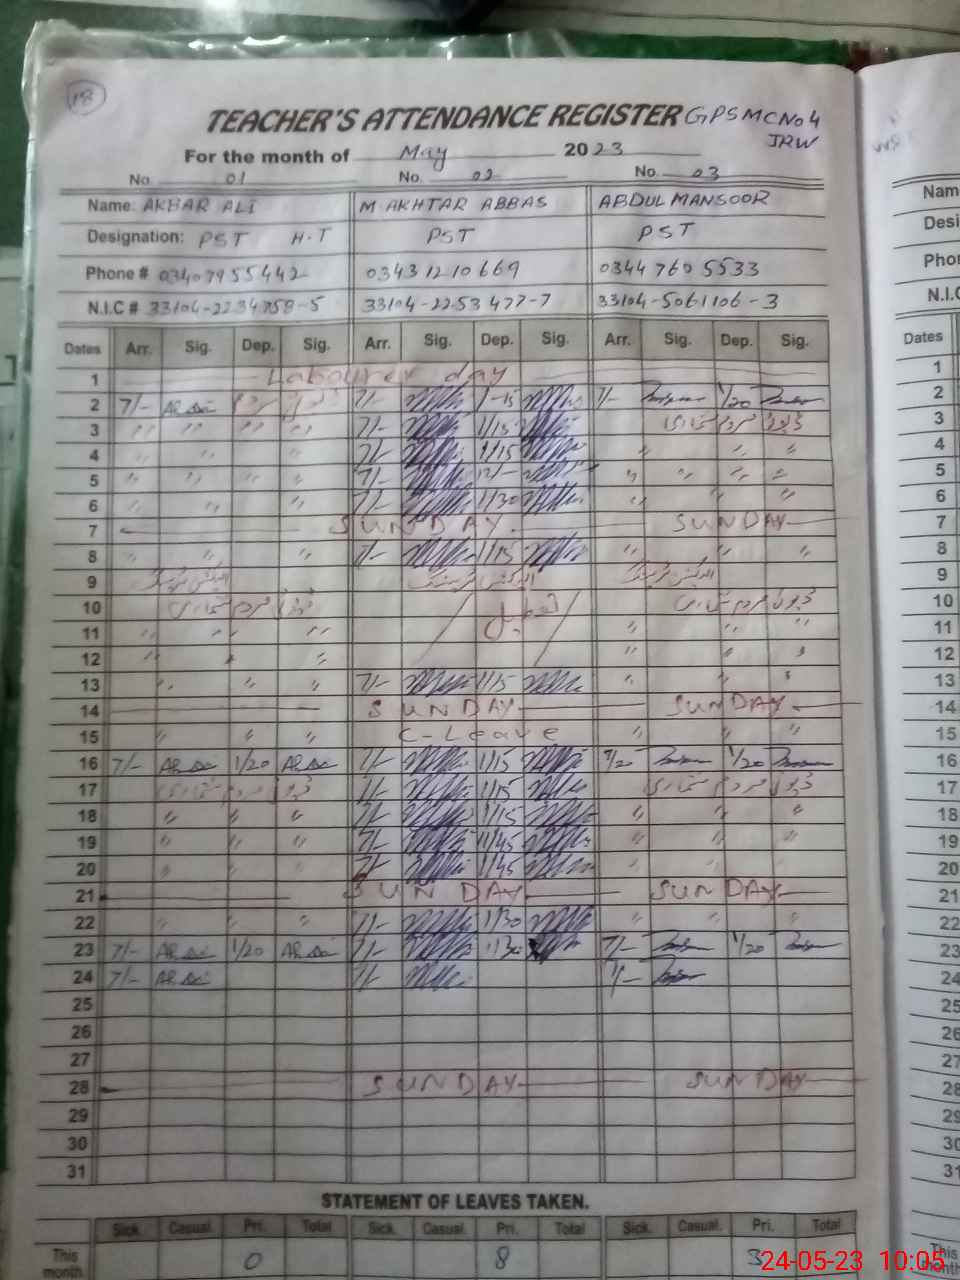 18
TEACHER'S ATTENDANCE REGISTER GPSMCNo4
JRW
For the month of May 2023
No. 01 No. 02 No. 03
Name: AKBAR ALI M AKHTAR ABBAS ABDUL MANSOOR
Designation: PST H-T PST PST
Phone # 03407955442 03431210669 0344 760 5533
N.I.C # 33104-2234758-5 33104-2253477-7 33104-5061106-3
Dates Arr. Sig. Dep. Sig. Arr. Sig. Dep. Sig. Arr. Sig. Dep. Sig.
1 Labourer day
2 7/- 7/- 1-15 7/- 1/20
3 " " " " 7/- 1/15 ڈیوٹی مردم شماری
4 " " " " 7/- 1/15 " " "
5 " " " " 7/- 12/- " " " "
6 " " " 7/- 1/30 " " "
7 SUNDAY SUNDAY
8 " " " 7/- 1/15 " " "
9 الیکشن ٹریننگ الیکشن ٹریننگ الیکشن ٹریننگ
10 ڈیوٹی مردم شماری ڈیوٹی مردم شماری
11 " " " " " "
12 " " " " " "
13 " " " 7/- 1/15 " " "
14 SUNDAY SUNDAY
15 " " " C-Leave " " "
16 7/- 1/20 7/- 1/15 7/20 1/20
17 ڈیوٹی مردم شماری 7/- 1/15 ڈیوٹی مردم شماری
18 " " " 7/- 1/15 " " "
19 " " " 7/- 11/45 " " "
20 " " " 7/- 1/45 " " "
21 SUNDAY SUNDAY
22 " " " 7/- 1/30 " " "
23 7/- 1/20 7/- 7/- 1/20
24 7/- 7/-
25
26
27
28 SUNDAY SUNDAY
29
30
31
STATEMENT OF LEAVES TAKEN.
Sick. Casual. Pri. Total Sick. Casual. Pri. Total Sick. Casual. Pri. Total
This month 0 8 3
24-05-23 10:05
Nam
Desi
Pho
N.I.C
Dates
1
2
3
4
5
6
7
8
9
10
11
12
13
14
15
16
17
18
19
20
21
22
23
24
25
26
27
28
29
30
31
This month